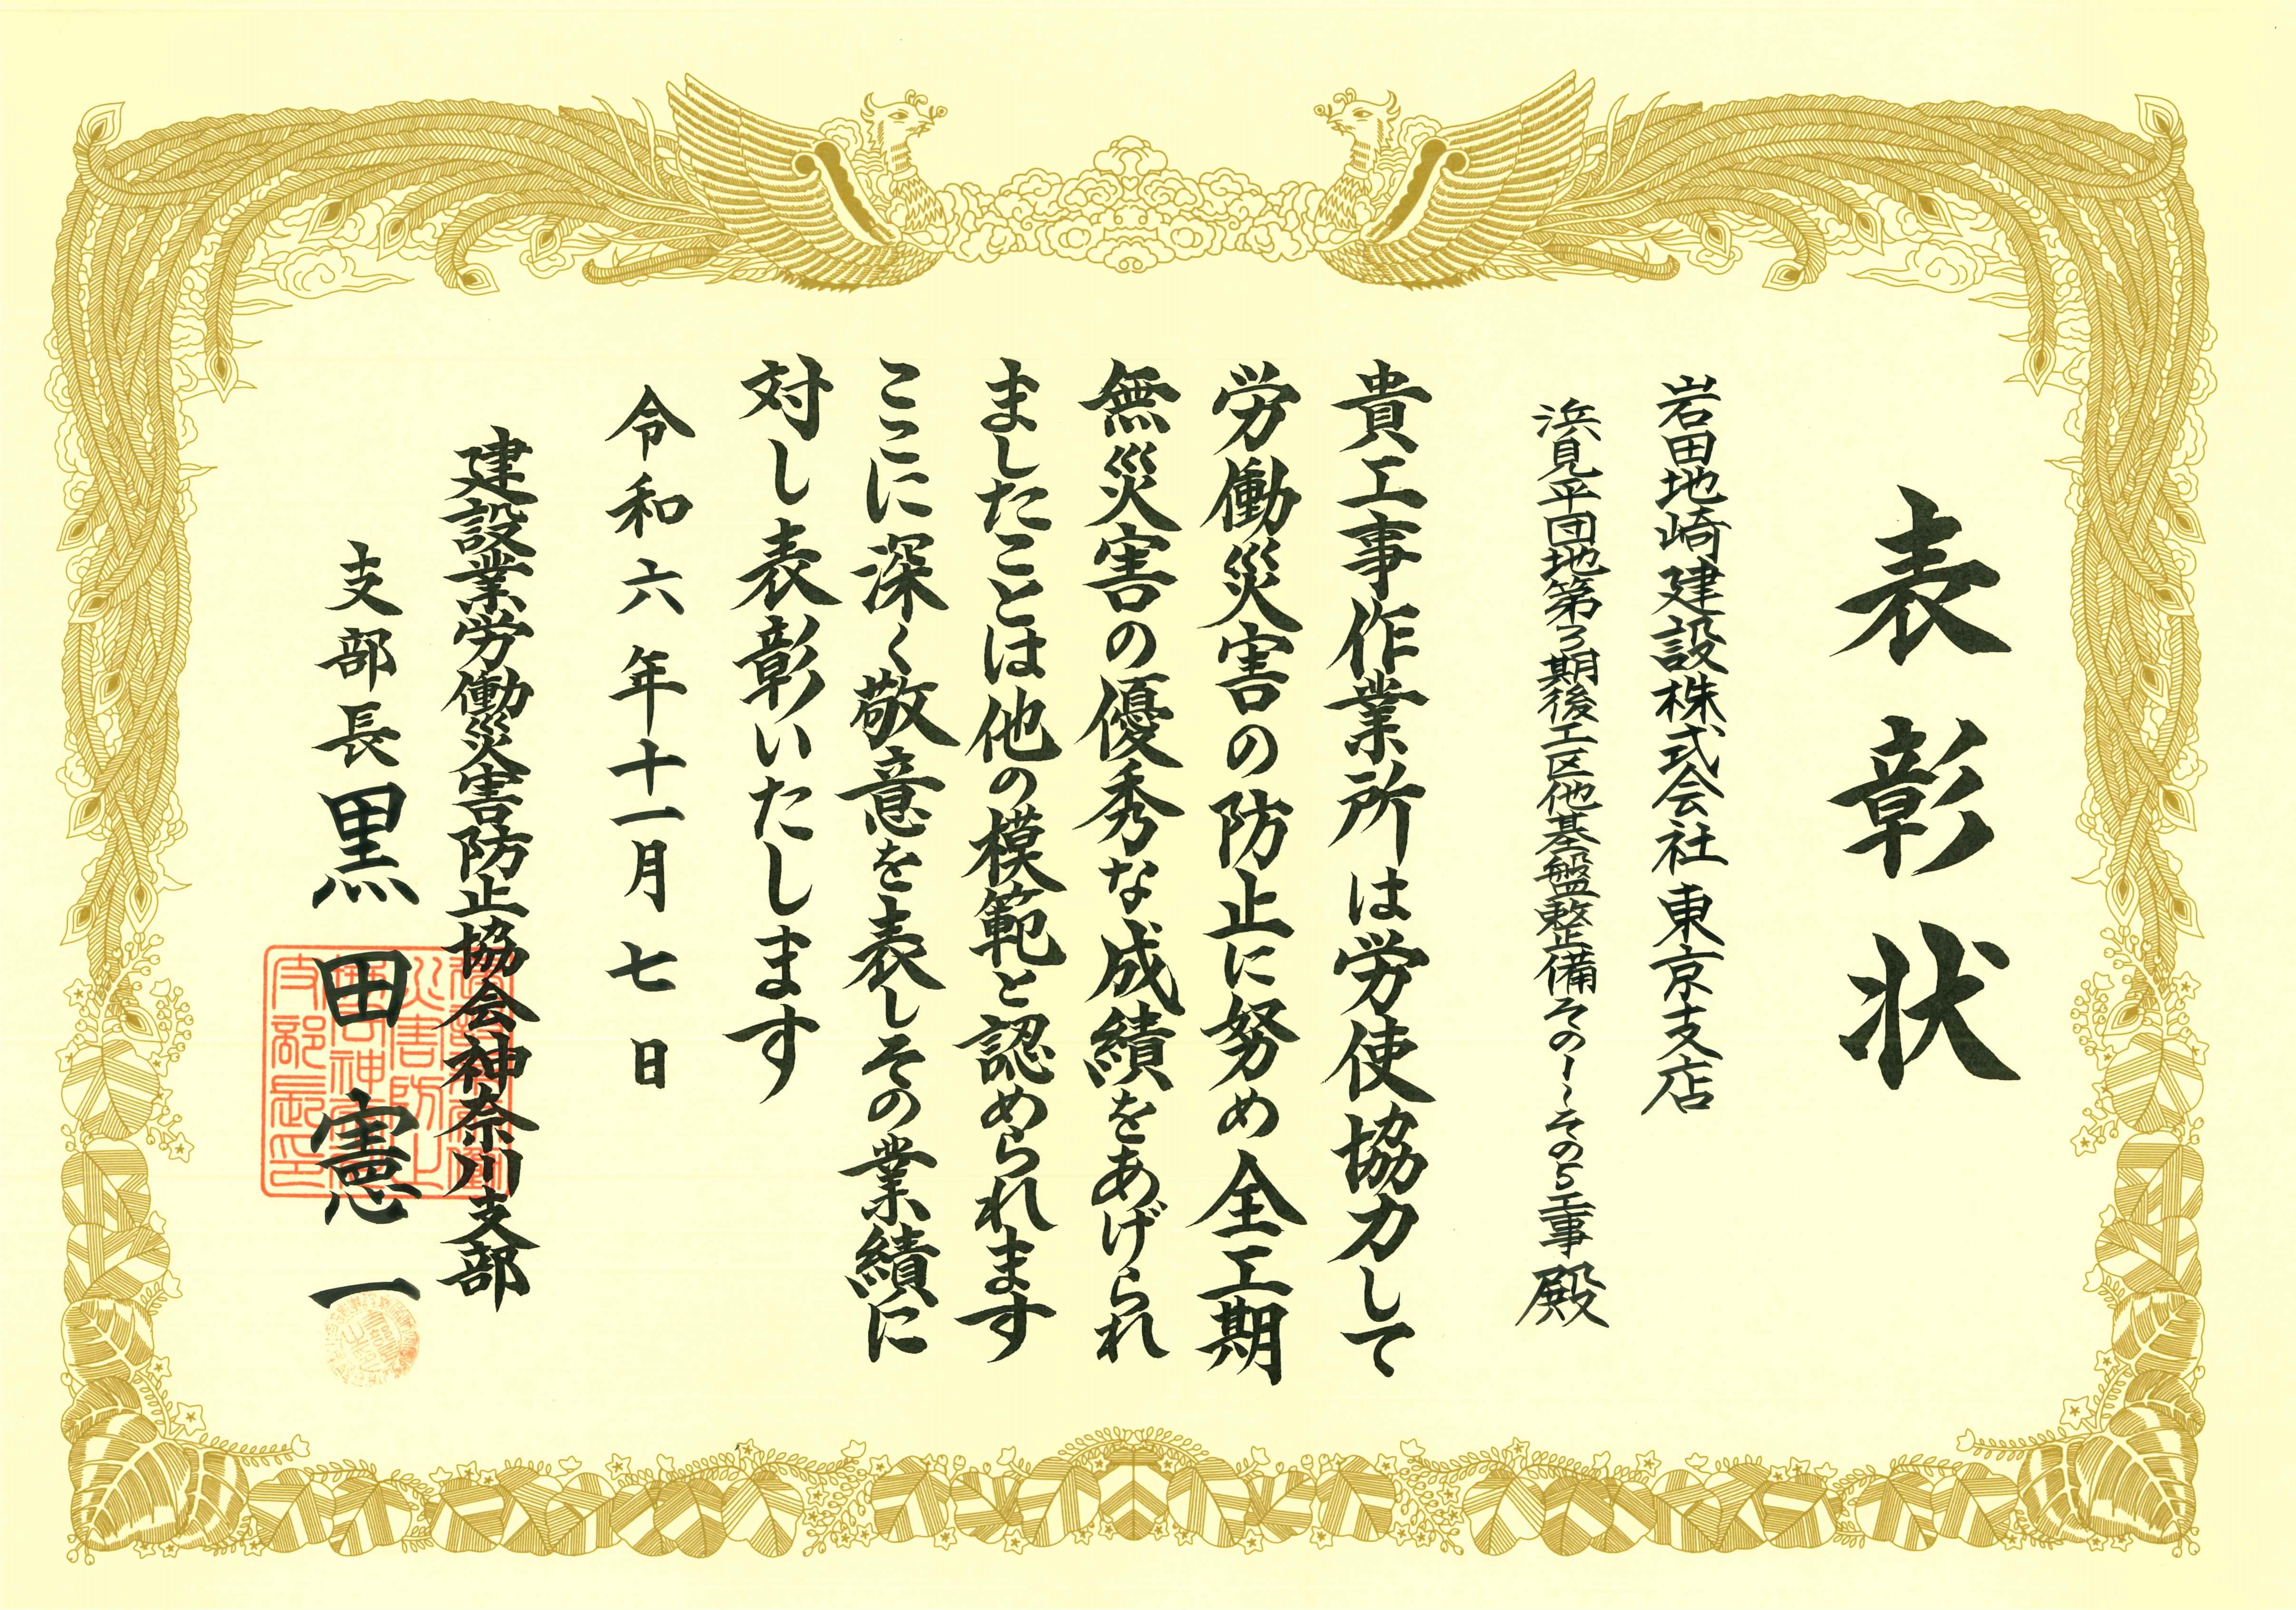 表彰状
岩田地崎建設株式会社 東京支店
浜見平団地第3期後工区他基盤整備その1~その5工事 殿
貴工事作業所は労使協力して
労働災害の防止に努め全工期
無災害の優秀な成績をあげられ
ましたことは他の模範と認められます
ここに深く敬意を表しその業績に
対し表彰いたします
令和六年十一月七日
建設業労働災害防止協会神奈川支部
支部長 黒田憲一